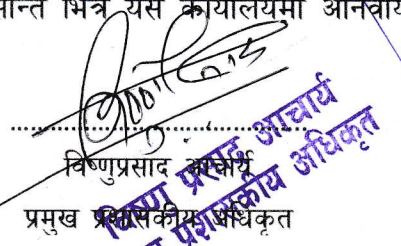 भित्र यस कार्यालयमा
विष्णुप्रसाद आचार्य
प्रमुख प्रशासकीय अधिकृत
विष्णु प्रसाद आचार्य
प्रशासकीय अधिकृत